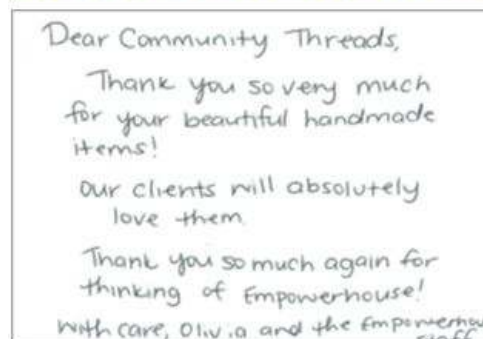 Dear Community Threads,
Thank you so very much
for your beautiful handmade
items!
our clients will absolutely
love them.
Thank you so much again for
thinking of Empowerhouse!
With care, Olivia and the
staff